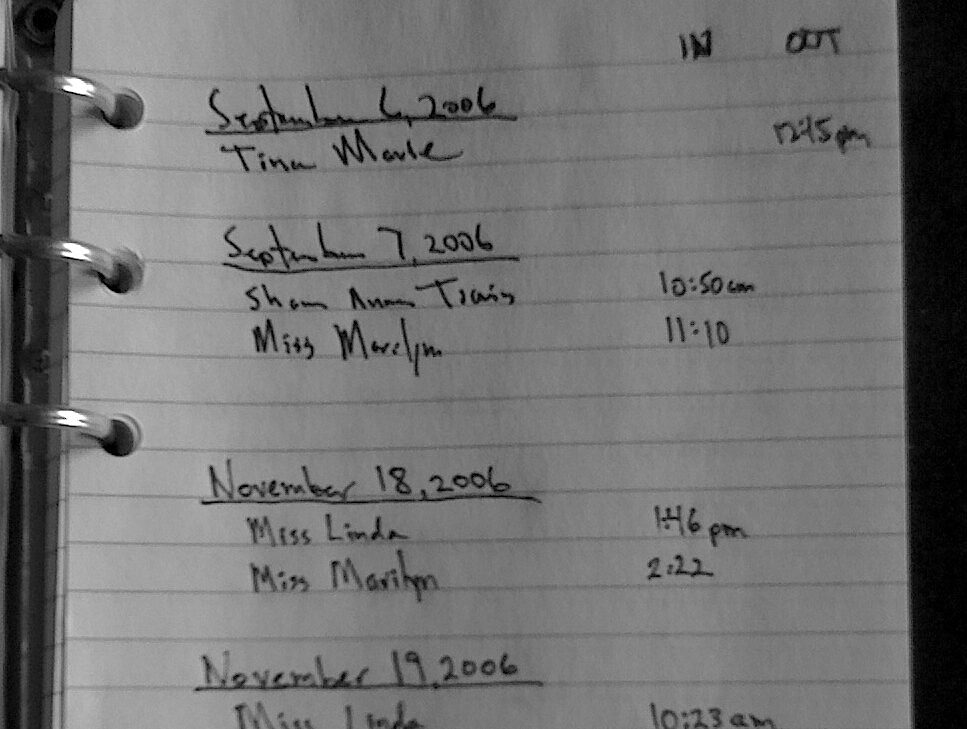 IN OUT
September 6, 2006
Tina Marie 12:15pm
September 7, 2006
10:50am
Miss Marilyn 11:10
November 18, 2006
Miss Linda 1:46 pm
Miss Marilyn 2:22
November 19, 2006
Miss Linda 10:23 am